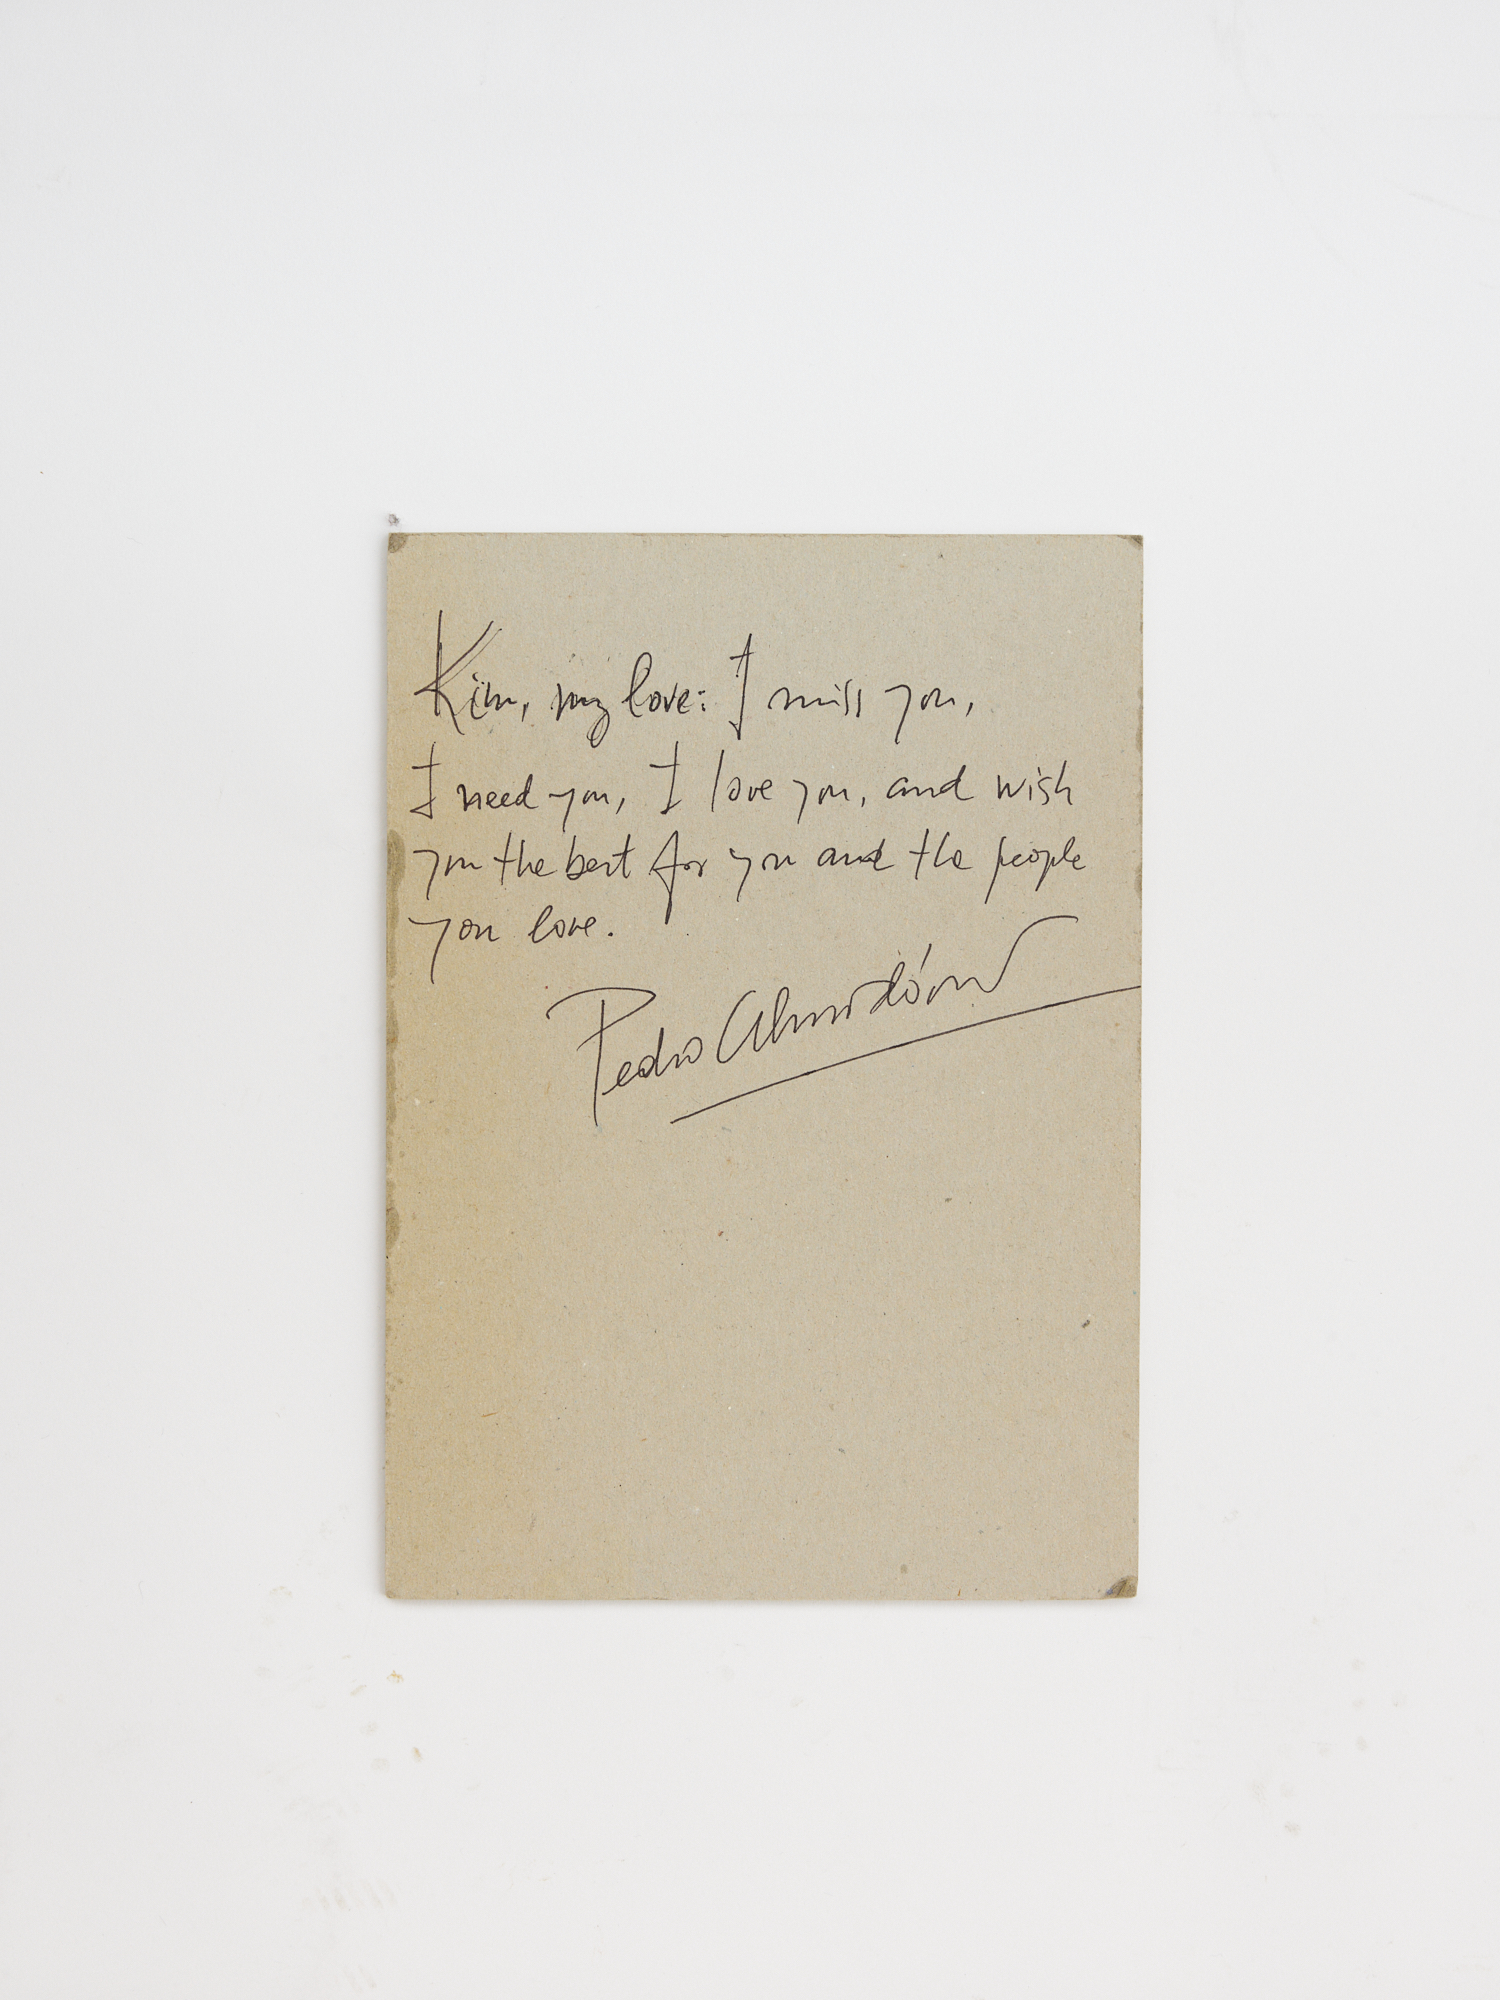 Kim, my love: I miss you,
I need you, I love you, and wish
you the best for you and the people
you love.
Pedro Almodóvar